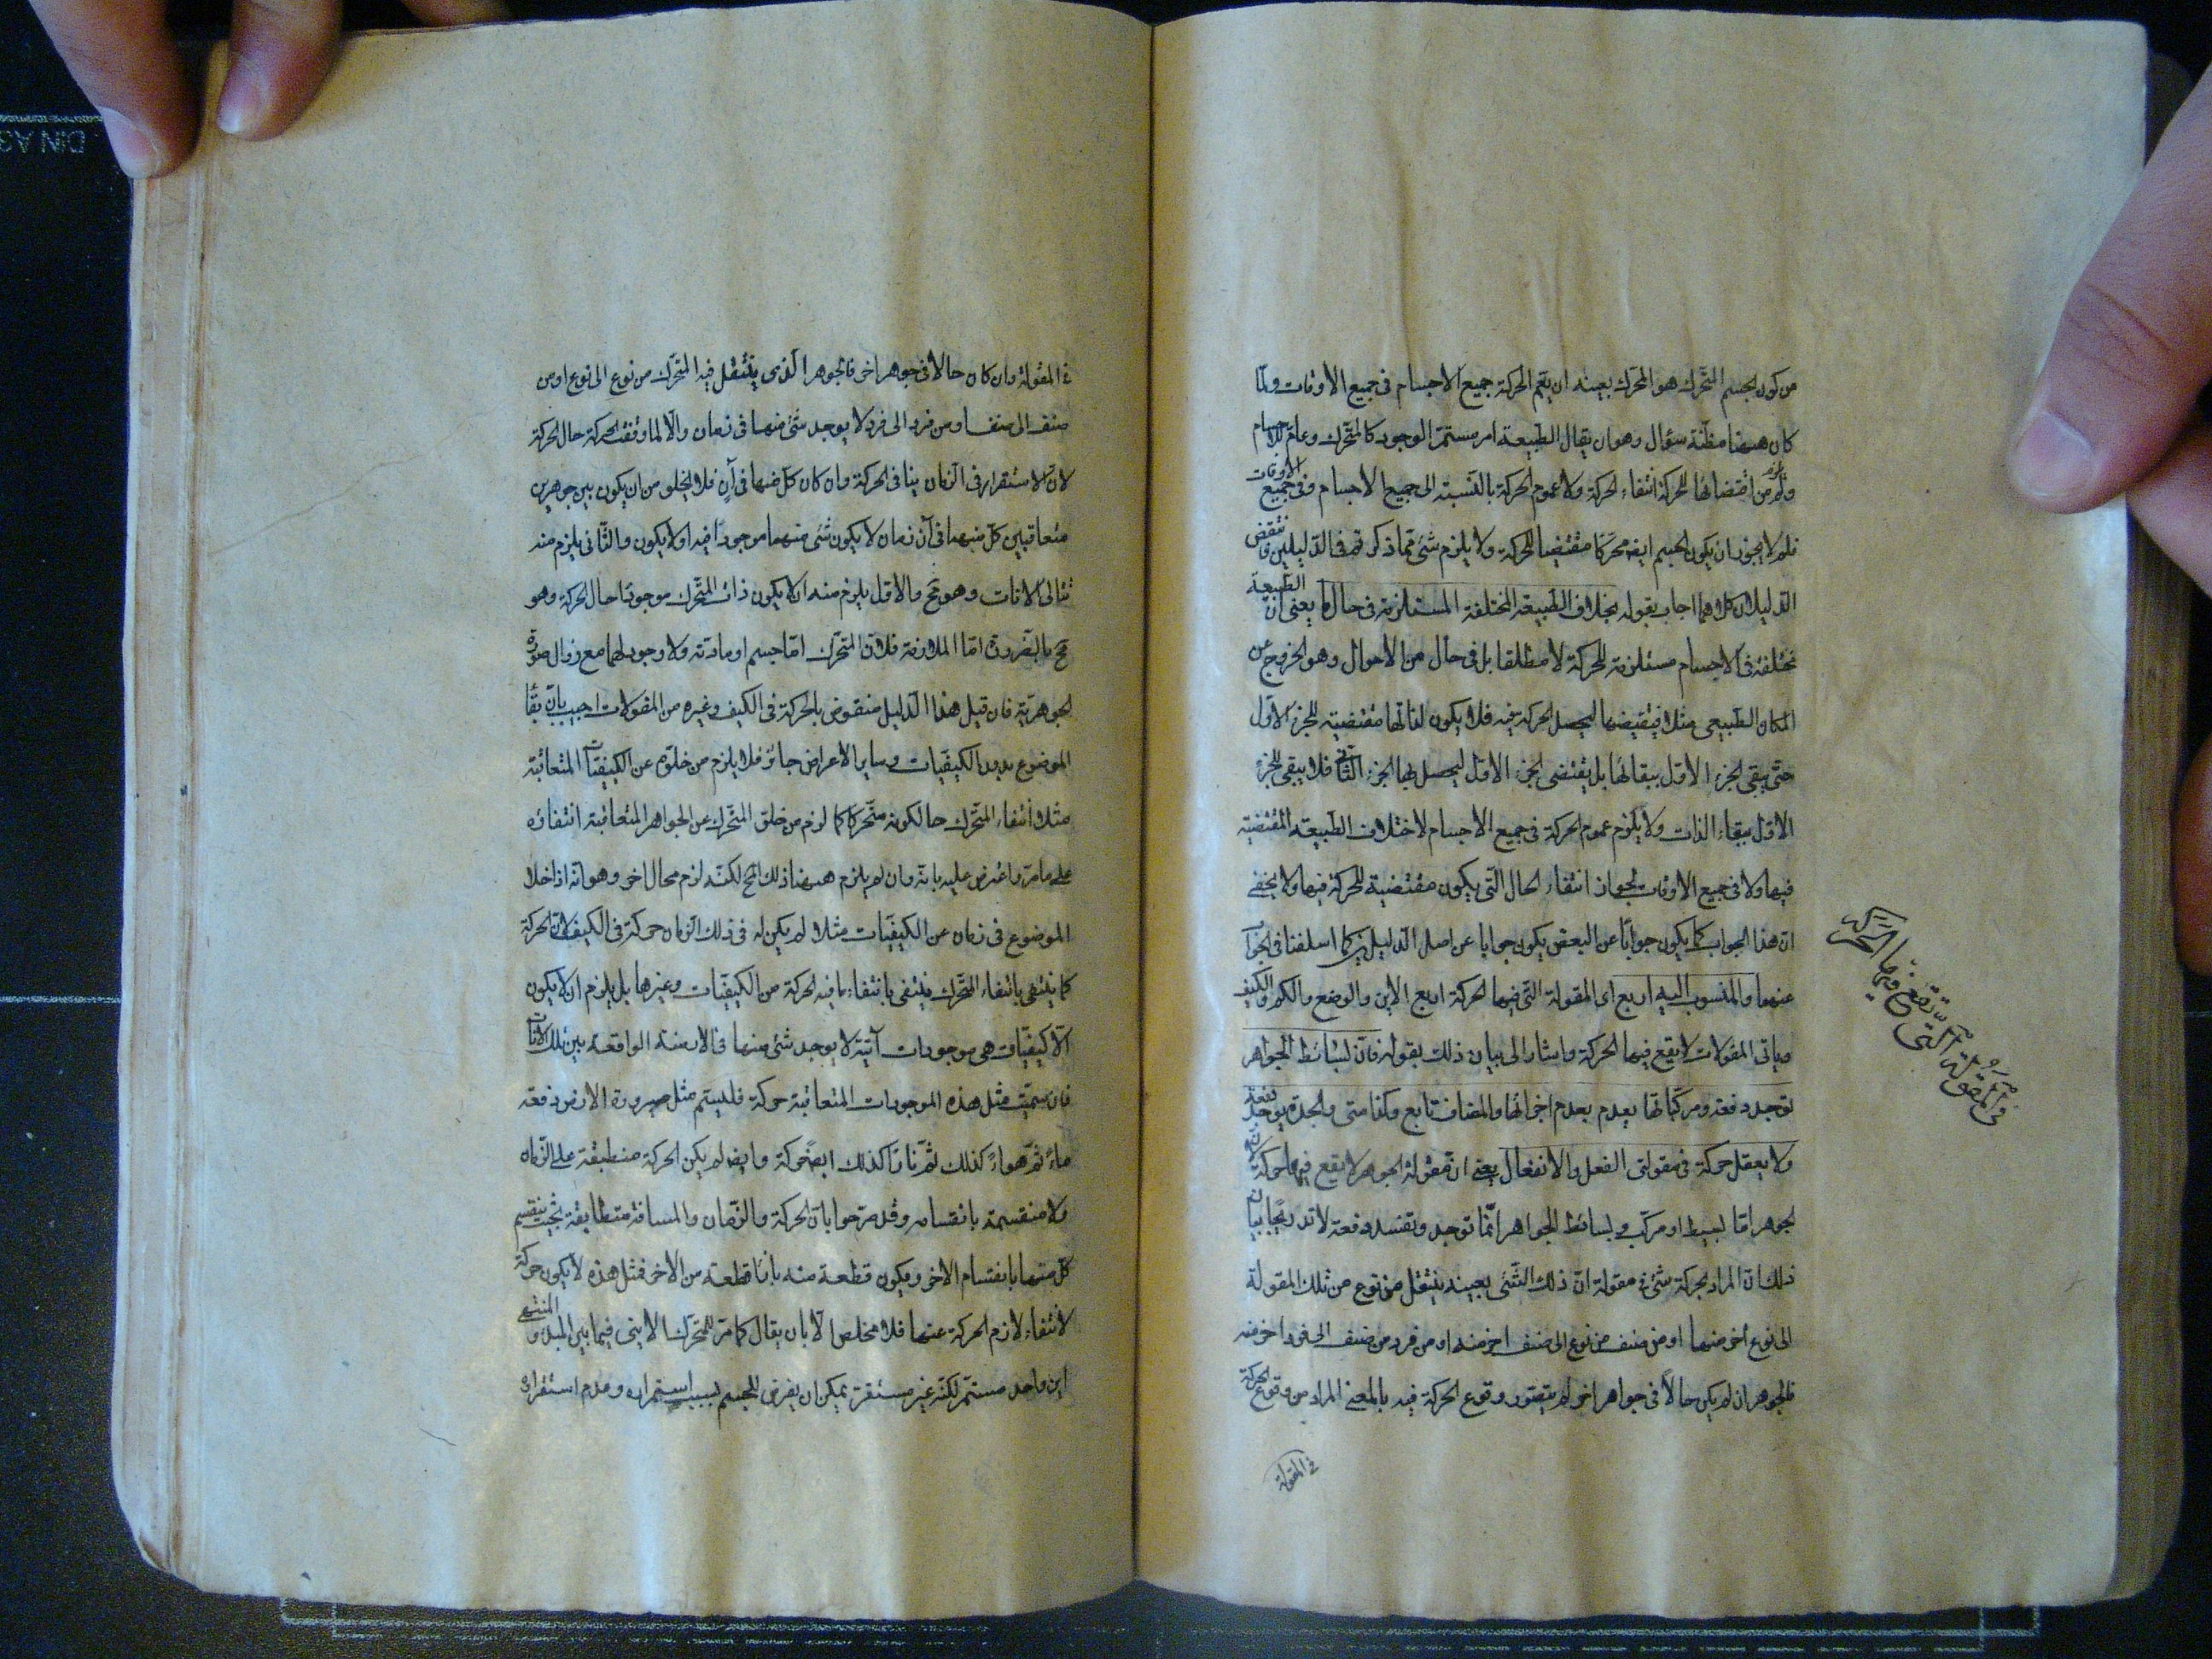 من كون الجسم المتحرك هو المحرّك بعينه ان يعم الحركة جميع الاجسام فى جميع الاوقات ولمّا
كان ههنا مظنّة سؤال وهو ان يقال الطبيعة امر مستمرّ الوجود كالمتحرّك وعام للاجسام
ولم يلزم من اقتضائها للحركة انتفاء الحركة ولا عموم الحركة بالنسبة الى جميع الاجسام وفى جميع الاوقات
فلم لا يجوز ان يكون الجسم ايضا محركا مقتضيا للحركة ولا يلزم شئ مما ذكرتم فى الدليلين فى نتقض
الدليلان كلاهما اجاب بقوله بخلاف الطبيعة المختلفة المستلزمة فى حال ما يعنى ان الطبيعة
مختلفة فى الاجسام مستلزمة للحركة لا مطلقا بل فى حال من الاحوال وهو الخروج عن
المكان الطبيعى مثلا فيقتضيها ليحصل الحركة فيه فلا يكون لذاتها مقتضية للجزء الاول
حتّى يبقى الجزء الاول ببقائها بل يقتضى الجزء الاول ليحصل لها الجزء الثانى فلا يبقى الجزء
الاول ببقاء الذات ولا يلزم عموم الحركة فى جميع الاجسام لاختلاف الطبيعة المقتضية
فيها ولا فى جميع الاوقات لجواز انتفاء الحال التّى يكون مقتضية للحركة فيها ولا يخفى
ان هذا الجواب كما يكون جوابا عن النقض يكون جوابا عن اصل الدليلين كما اسلفنا فى الجواب
عنهما والمنسوب اليه اربع اى المقولة التى فيها الحركة اربع الاين والوضع والكم والكيف
وباقى المقولات لا يقع فيها الحركة واشار الى بيان ذلك بقوله فان بسائط الجواهر
توجد دفعة ومركباتها يعدم بعدم اجزائها والمضاف تابع وكذا متى والجدة يوجد دفعة
ولا يعقل حركة فى مقولتى الفعل والانفعال يعنى ان مقولة الجوهر لا يقع فيها حركة لان
الجوهر امّا بسيط او مركب وبسائط الجواهر انّما توجد وتفسد دفعة لا تدريجا بيان
ذلك ان المراد بحركة شئ فى مقولة ان ذلك الشئ بعينه ينتقل من نوع من تلك المقولة
الى نوع آخر منها او من صنف من نوع الى صنف اخر منه او من فرد من صنف الى فرد اخر منه
فالجوهر ان لم يكن حالا فى جواهر اخر لم يتصور وقوع الحركة فيه بالمعنى المراد من وقوع الحركة
فى المقولة
فى المقولة التى تقع فيها الحركة
فى المقولة وان كان حالا فى جوهر اخر فالجوهر الذى ينتقل فيه المتحرّك من نوع الى نوع او من
صنف الى صنف او من فرد الى فرد لا يوجد شئ منها فى زمان والا لما وقعت الحركة حال الحركة
لان الاستقرار فى الزمان ينافى الحركة وان كان كل منها فى آن فلا يخلو من ان يكون بين جوهرين
متعاقبين كل منهما فى آن زمان لا يكون شئ منهما موجودا فيه او لا يكون والثانى يلزم منه
تتالى الانات وهو مح والاول يلزم منه ان لا يكون ذات المتحرك موجودا حال الحركة وهو
مح بالضرورة امّا الملازمة فلان المتحرك امّا جسم او مادته ولا وجود لهما مع زوال صورة
الجوهرية فان قيل هذا الدليل منقوض بالحركة فى الكيف وغيره من المقولات اجيب بان بقاء
الموضوع بدون الكيفيات وساير الاعراض جائز فلا يلزم من خلوّه عن الكيفيات المتعاقبة
مثلا انتفاء المتحرك حال كونه متحركا كما لزم من خلو المتحرك عن الجواهر المتعاقبة انتفاؤه
على ما مرّ واعترض عليه بانه وان لم يلزم ههنا ذلك المح لكنه لزم محال اخر وهو انه اذا خلا
الموضوع فى زمان عن الكيفيات مثلا لم يكن له فى ذلك الزمان حركة فى الكيف لان الحركة
كما ينتفى بانتفاء المتحرك ينتفى بانتفاء ما فيه الحركة من الكيفيات وغيرها بل يلزم ان لا يكون
الا كيفيات هى موجودات آنية لا يوجد شئ منها فى الازمنة الواقعة بين تلك الانات
فان سميت مثل هذه الموجودات المتعاقبة حركة فليسم مثل صيرورة الارض دفعة
ماءً ثم هواءً كذلك ثم نارا كذلك ايضا حركة وايضا لم يكن الحركة منطبقة على الزمان
ولا منقسمة بانقسامه وقد مرّ جوابات الحركة والزمان والمسافة متطابقة بحيث ينقسم
كل منها بانقسام الاخر ويكون قطعة منه بازاء قطعة من الاخر فمثل هذه لا يكون حركة
لانتفاء لازم الحركة عنها فلا مخلص الا بان يقال كما مرّ للمتحرك الاينى فيما بين المبدا و المنتهى
اين واحد مستمر لكنه غير مستقر يمكن ان يفرض للجسم بسبب استمراره وعدم استقراره